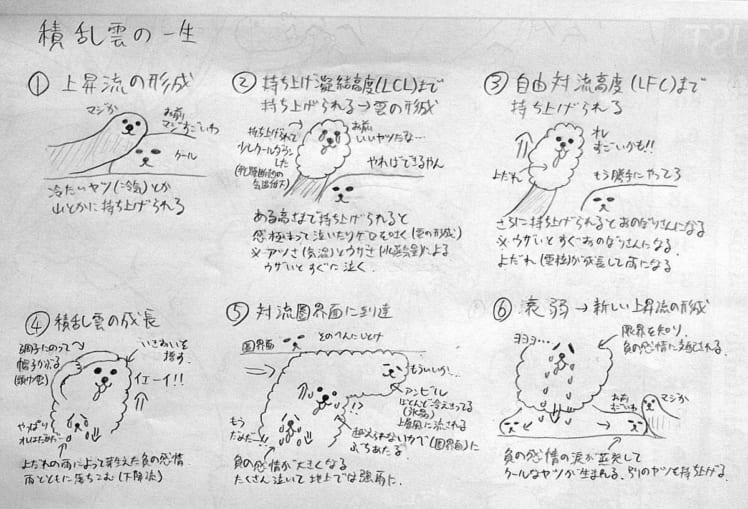 積乱雲の一生
① 上昇流の形成
マジか
お前
マジすごいわ
クール
冷たいヤツ(冷気)とか
山とかに持ち上げられる
② 持ち上げ凝結高度(LCL)まで
持ち上げられる→雲の形成
持ち上げられて
少しクールダウン
した
(乾燥断熱的
気温低下)
お前
いいヤツだな…
やればできるやん
ある高さまで持ち上げられると
感極まって泣いたりゲロを吐く(雲の形成)
※アツさ(気温)とウザさ(水蒸気量)による
ウザいとすぐに泣く.
③ 自由対流高度(LFC)まで
持ち上げられる
オレ
すごいかも!!
よだれ
もう勝手にやってろ
さらに持ち上げられるとおのぼりさんになる
※ウザいとすぐおのぼりさんになる.
よだれ(雲粒)が成長して雨になる
④ 積乱雲の成長
調子にのって
帽子かぶる
(頭巾雲)
いきおいを
増す.
イエーイ!!
やっぱり
オレはだめだ…
よだれの雨によって芽生えた負の感情
雨とともに落ちこむ(下降流)
⑤ 対流圏界面に到達
圏界面
そのへんにしとけ
もういいか…
アンビル
ほとんど冷えきってる
(氷晶)
上層風に流される
!?
越えられないカベ(圏界面)に
ぶちあたる
もう
だめだ!!
負の感情が大きくなる
たくさん泣いて地上では強雨に.
⑥ 衰弱→新しい上昇流の形成
ヨヨヨ…
限界を知り,
負の感情に支配される.
お前
すごいわ
マジか
負の感情の涙が蒸発して
クールなヤツが生まれる. 別のヤツを持ち上げる.